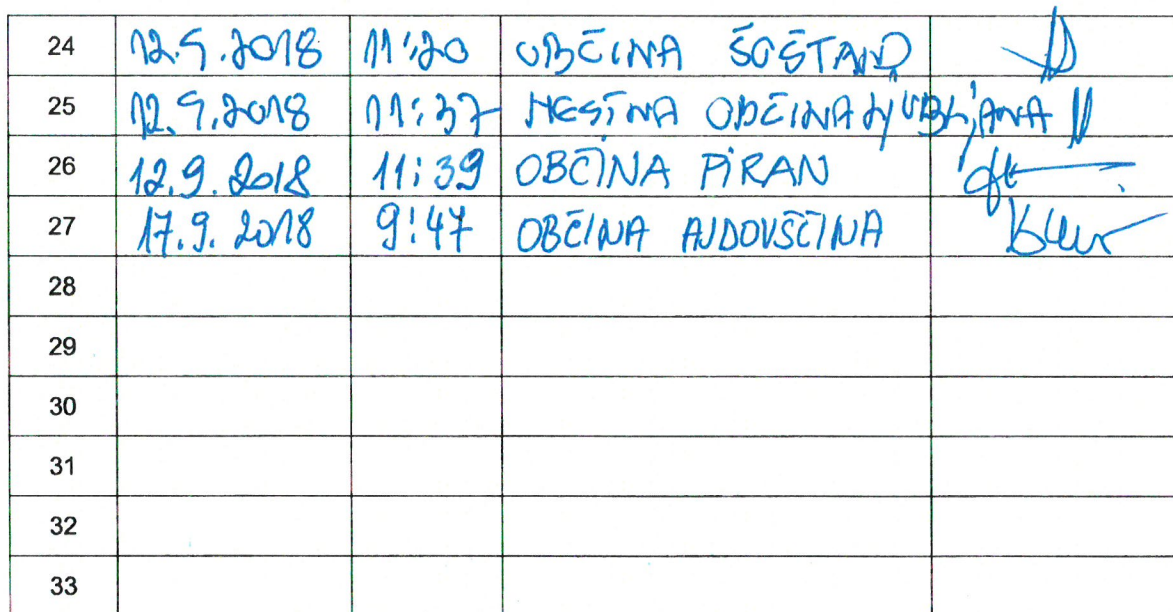 24 12.9.2018 11:20 OBČINA ŠOŠTANJ
25 12.9.2018 11:37 MESTNA OBČINA LJUBLJANA
26 12.9.2018 11:39 OBČINA PIRAN
27 17.9.2018 9:47 OBČINA AJDOVŠČINA
28
29
30
31
32
33